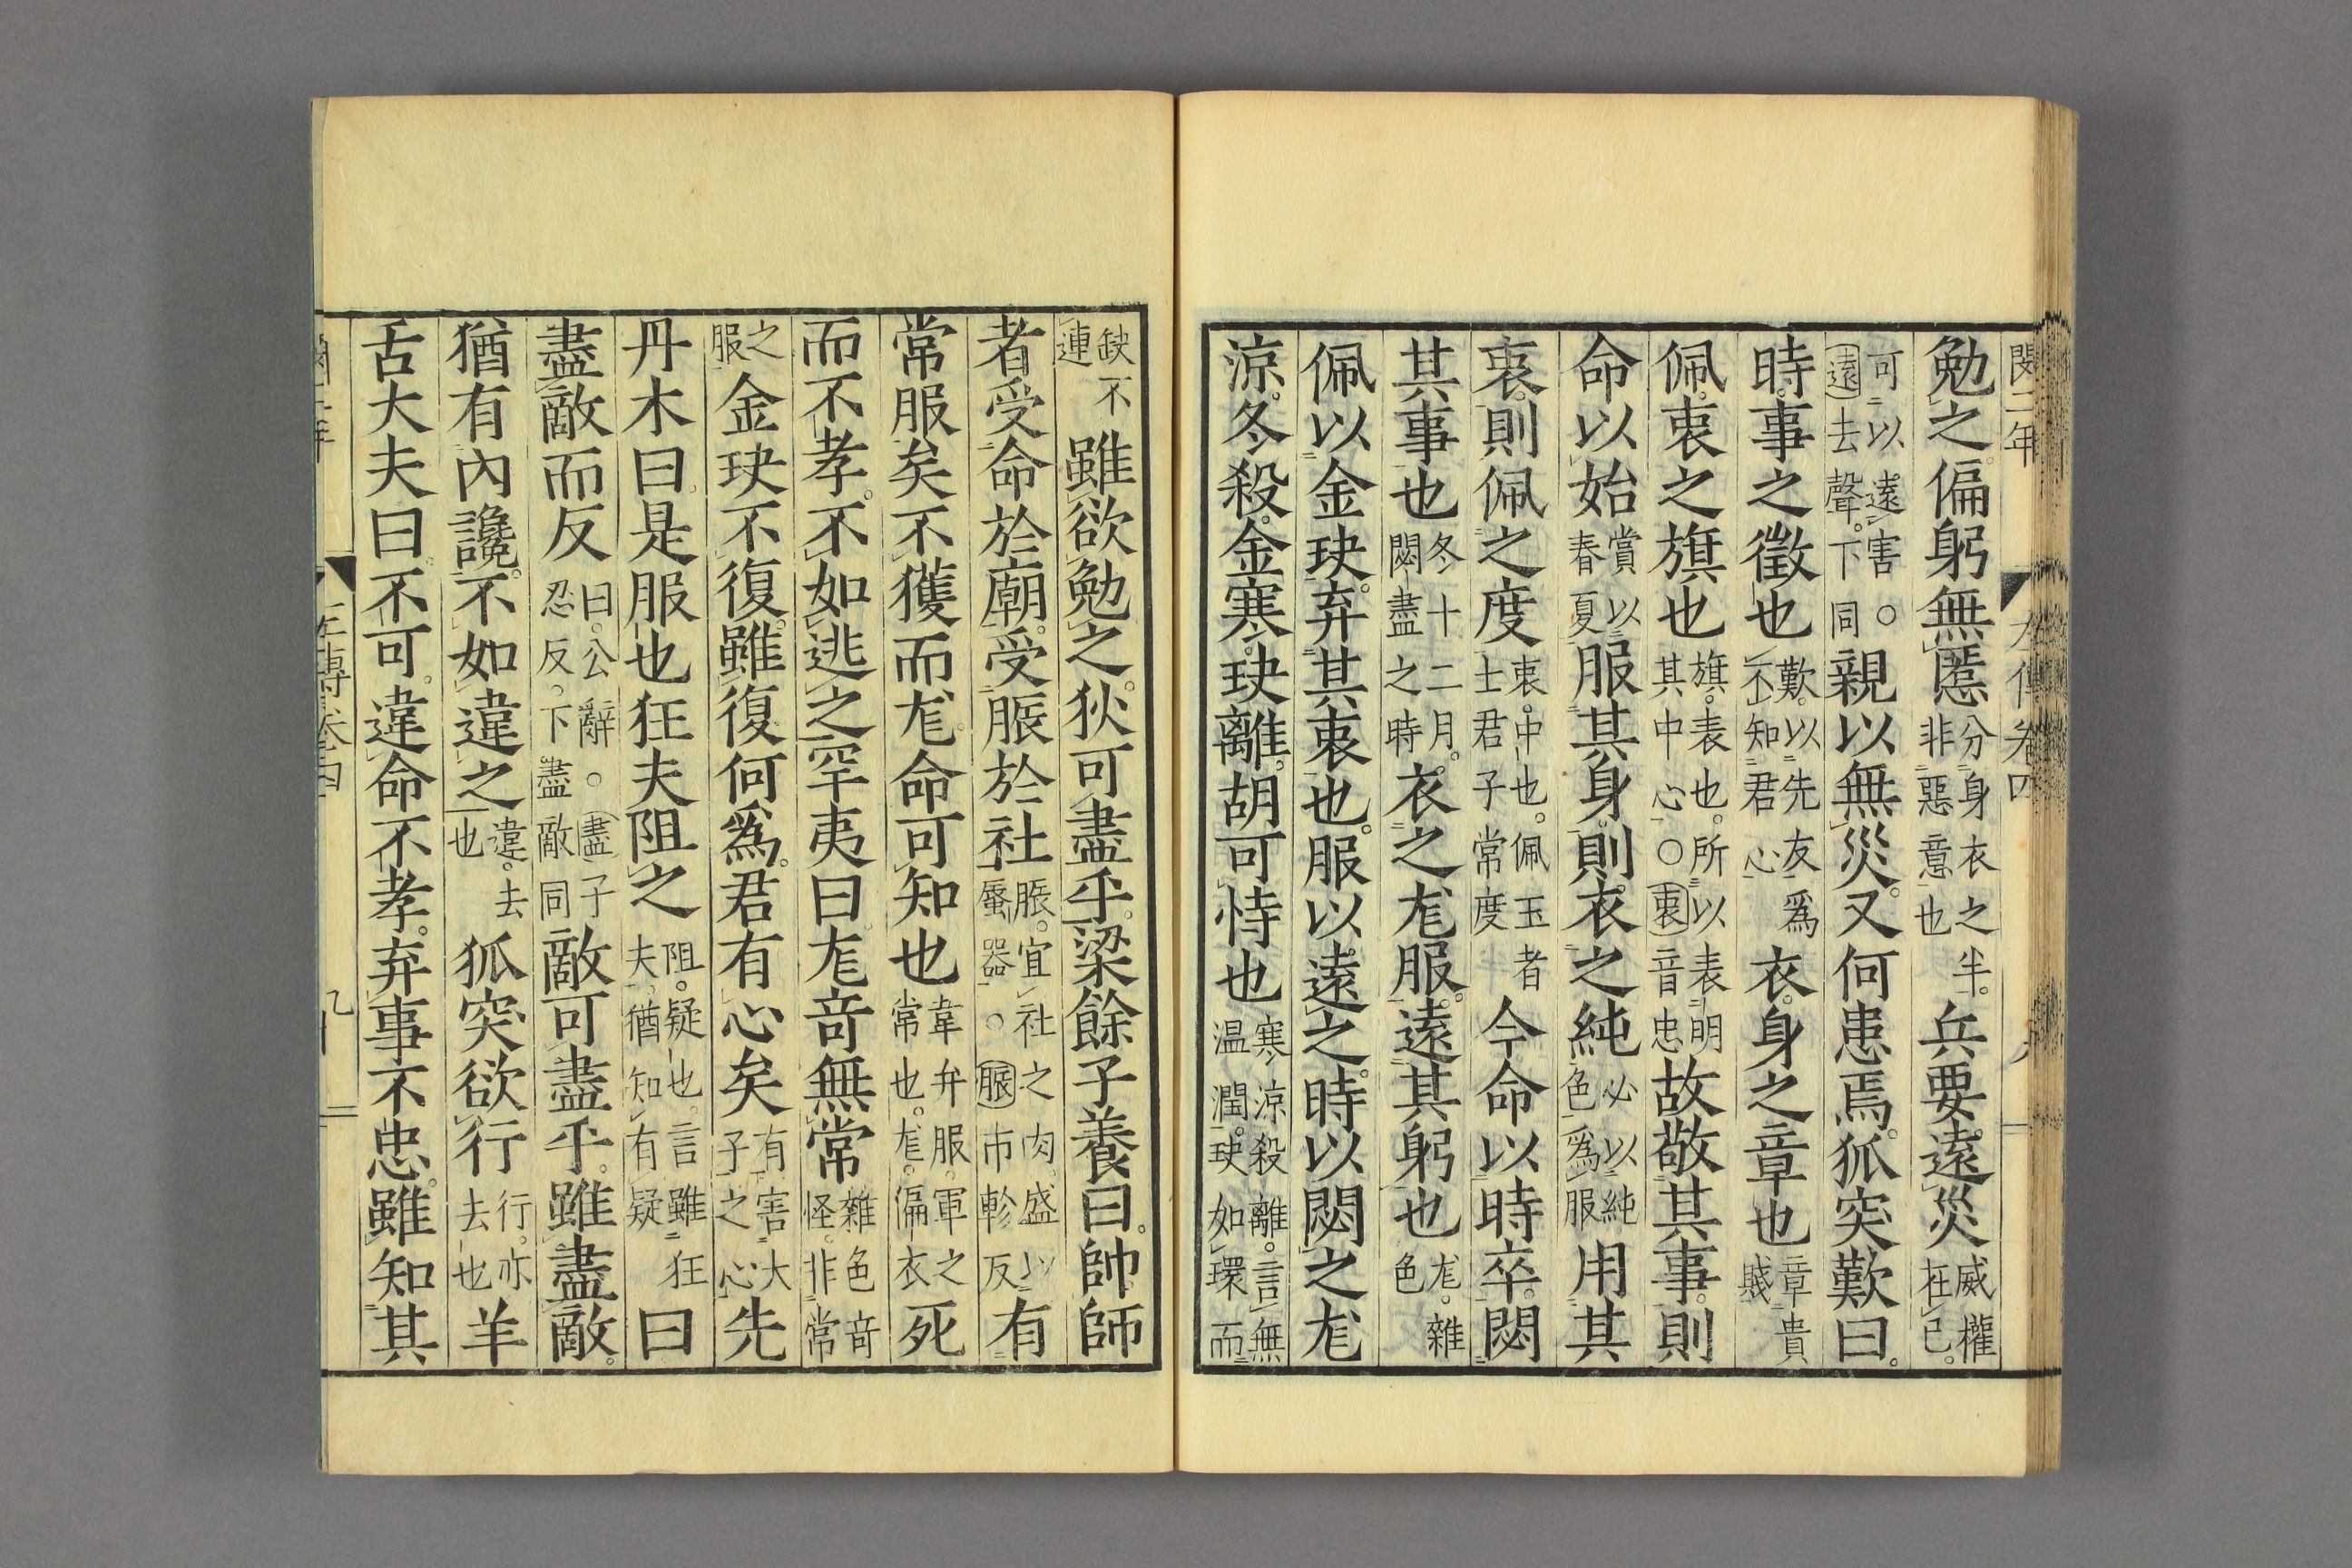 閔二年　左傳卷四
勉之偏躬無慝分身衣之半非惡意也兵要遠災威權在己
可以遠害○遠去聲下同親以無災又何患焉狐突歎曰
時事之徵也歎以先友爲不知君心衣身之章也章貴賤
佩衷之旗也旗表也所以表明其中心○衷音忠故敬其事則
命以始賞以春夏服其身則衣之純必以純色爲服用其
衷則佩之度衷中也佩玉者士君子常度今命以時卒閟
其事也冬十二月閟盡之時衣之尨服遠其躬也尨雜色
佩以金玦弃其衷也服以遠之時以閟之尨
涼冬殺金寒玦離胡可恃也寒涼殺離言無温潤玦如環而
缺不連雖欲勉之狄可盡乎梁餘子養曰帥師
者受命於廟受脤於社脤宜社之肉盛以蜃器○脤市軫反有
常服矣不獲而尨命可知也韋弁服軍之常也尨偏衣死
而不孝不如逃之罕夷曰尨竒無常雜色竒怪非常
之服金玦不復雖復何爲君有心矣有害大子之心先
丹木曰是服也狂夫阻之阻疑也言雖狂夫猶知有疑曰
盡敵而反曰公辭○盡子忍反下盡敵同敵可盡乎雖盡敵
猶有內讒不如違之違去也狐突欲行行亦去也羊
舌大夫曰不可違命不孝弃事不忠雖知其